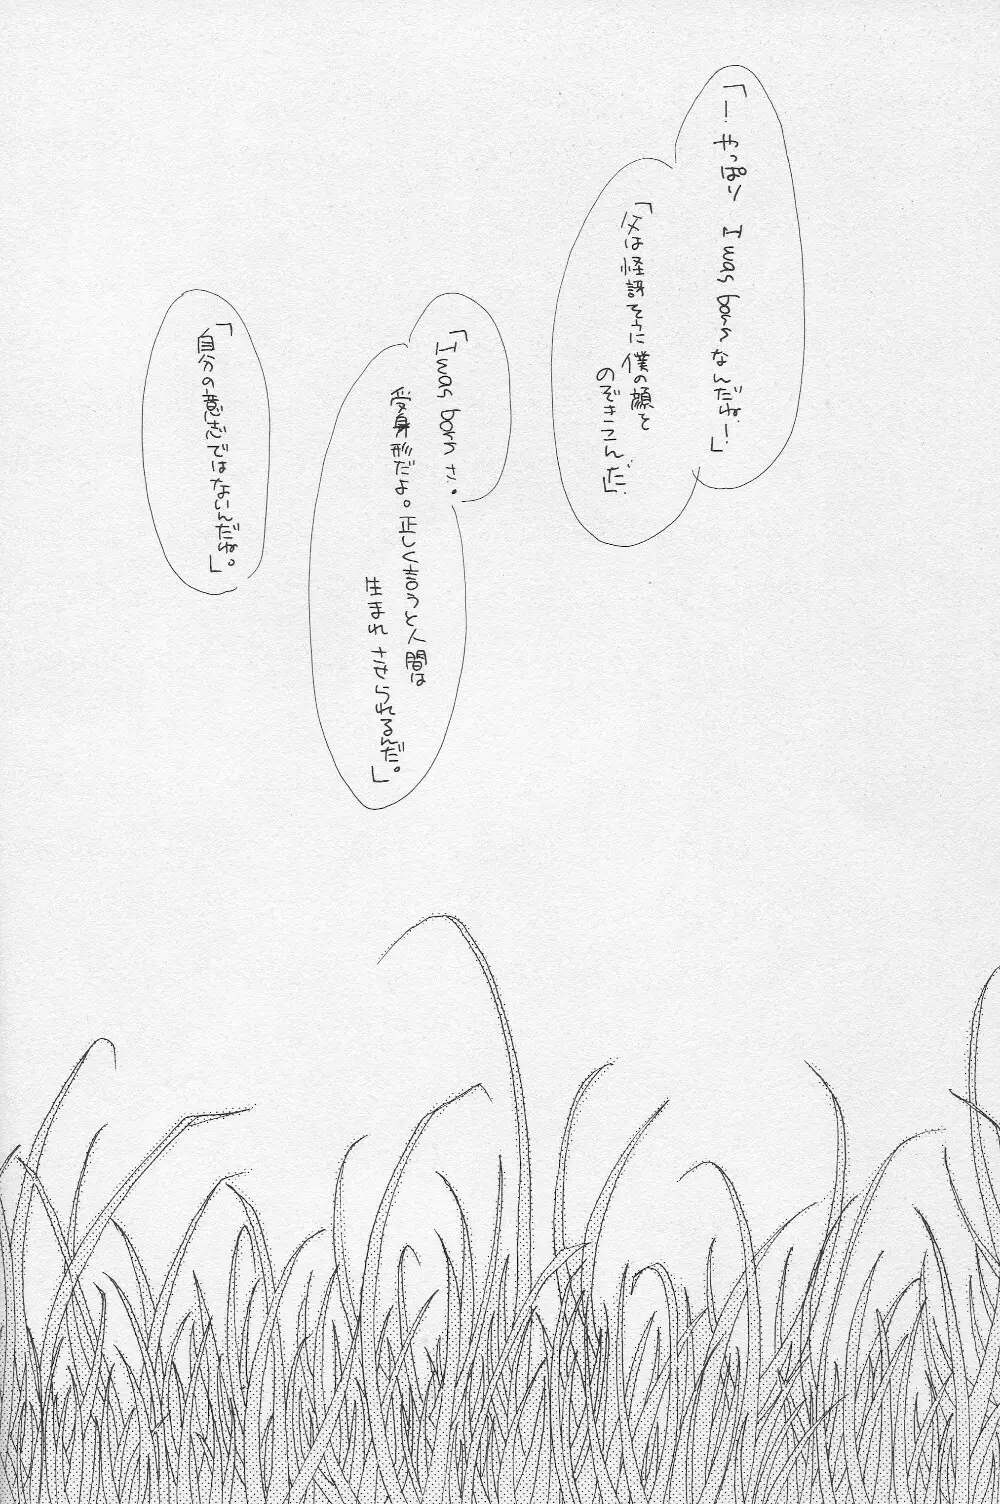 「―やっぱり I was born なんだね―」
「父は怪訝そうに僕の顔を
のぞきこんだ」
「I was born さ。
受身形だよ。正しく言うと人間は
生まれさせられるんだ。」
「自分の意志ではないんだね。」